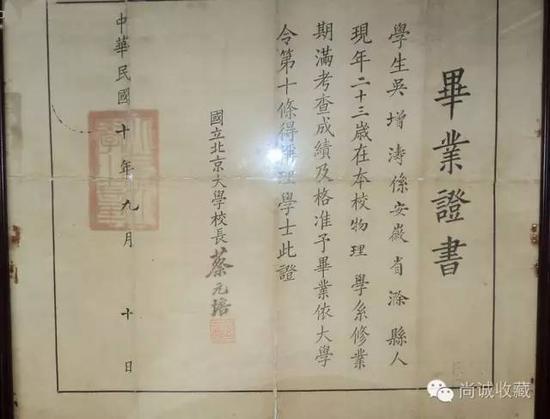 畢業證書
學生吳增濤係安徽省滁縣人
現年二十三歲在本校物理學系修業
期滿考查成績及格准予畢業依大學
令第十條得稱理學士此證
國立北京大學校長蔡元培
中華民國十年九月十日
尚诚收藏